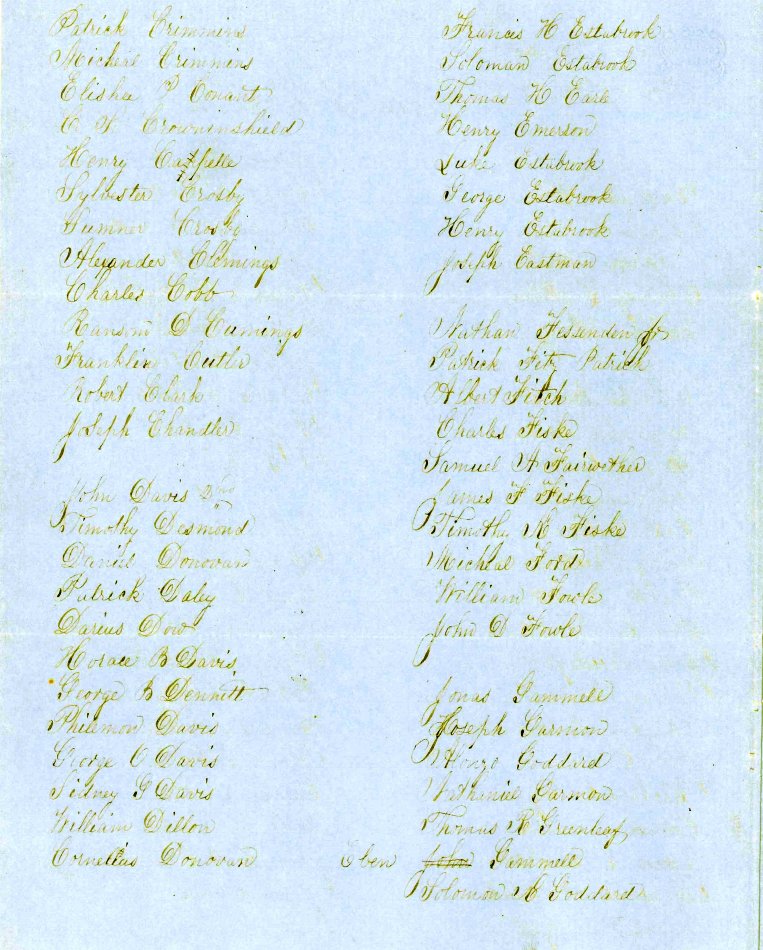 Patrick Crimmins
Micheal Crimmins
Elisha P Conant
Crowninshield
Henry
Sylvester Crosby
Sumner Crosby
Alexander Clemings
Charles Cobb
Ransom D Cumings
Franklin Cutler
Robert Clark
Joseph Chandler
John Davis 2nd
Timothy Desmond
Daniel Donovan
Patrick Daley
Darius Dow
Horace B Davis
George B Dennitt
Philemon Davis
George O Davis
Sidney G Davis
William Dillon
Cornelius Donovan
Francis H Estabrook
Soloman Estabrook
Thomas H Earl
Henry Emerson
Luke Estabrook
George Estabrook
Henry Estabrook
Joseph Eastman
Nathan Fessenden Jr
Patrick Fitz Patrick
Albert Fitch
Charles Fiske
Samuel A Fairwether
James F Fiske
Timothy K Fiske
Micheal Ford
William Fowle
John D Fowle
Jonas Gammell
Joseph Garmon
Alonzo Goddard
Nathaniel Garmon
Thomas R Greenleaf
Eben John Gammell
Solomon A Goddard